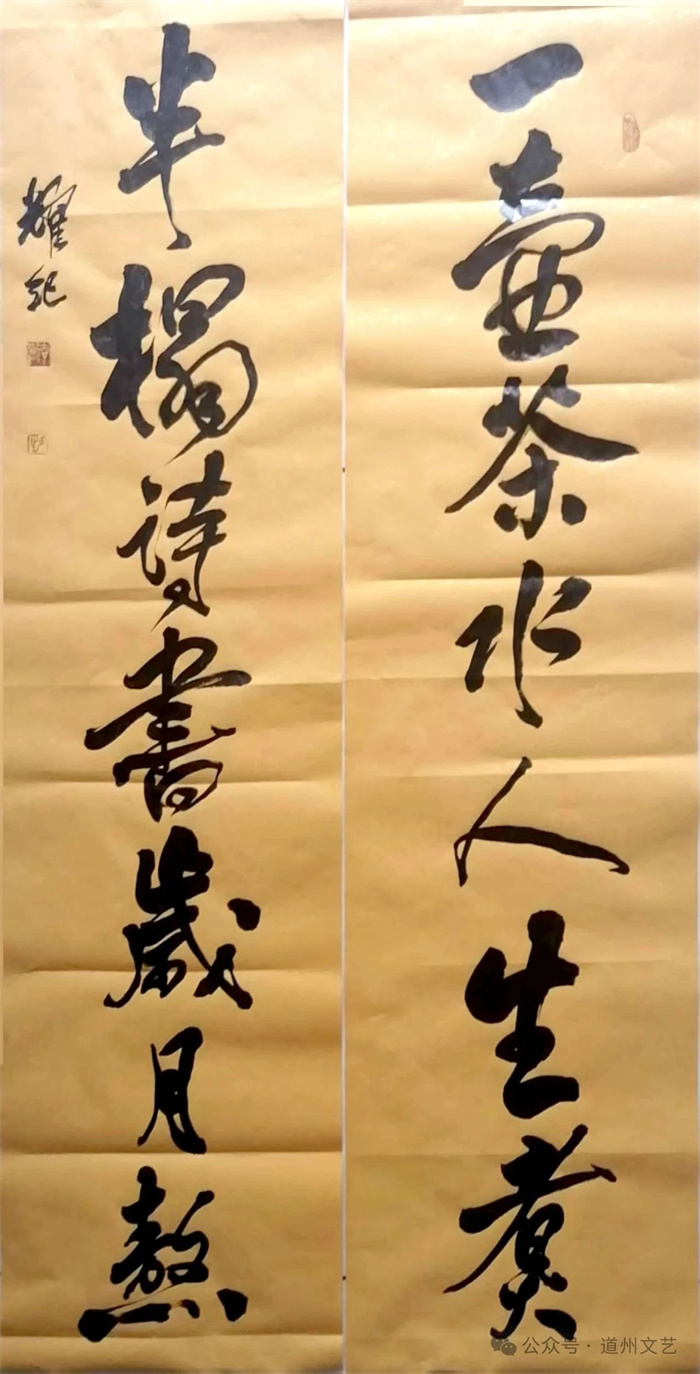 一壶茶水人生煮
半榻詩書歲月熬
耀紀
公众号·道州文艺